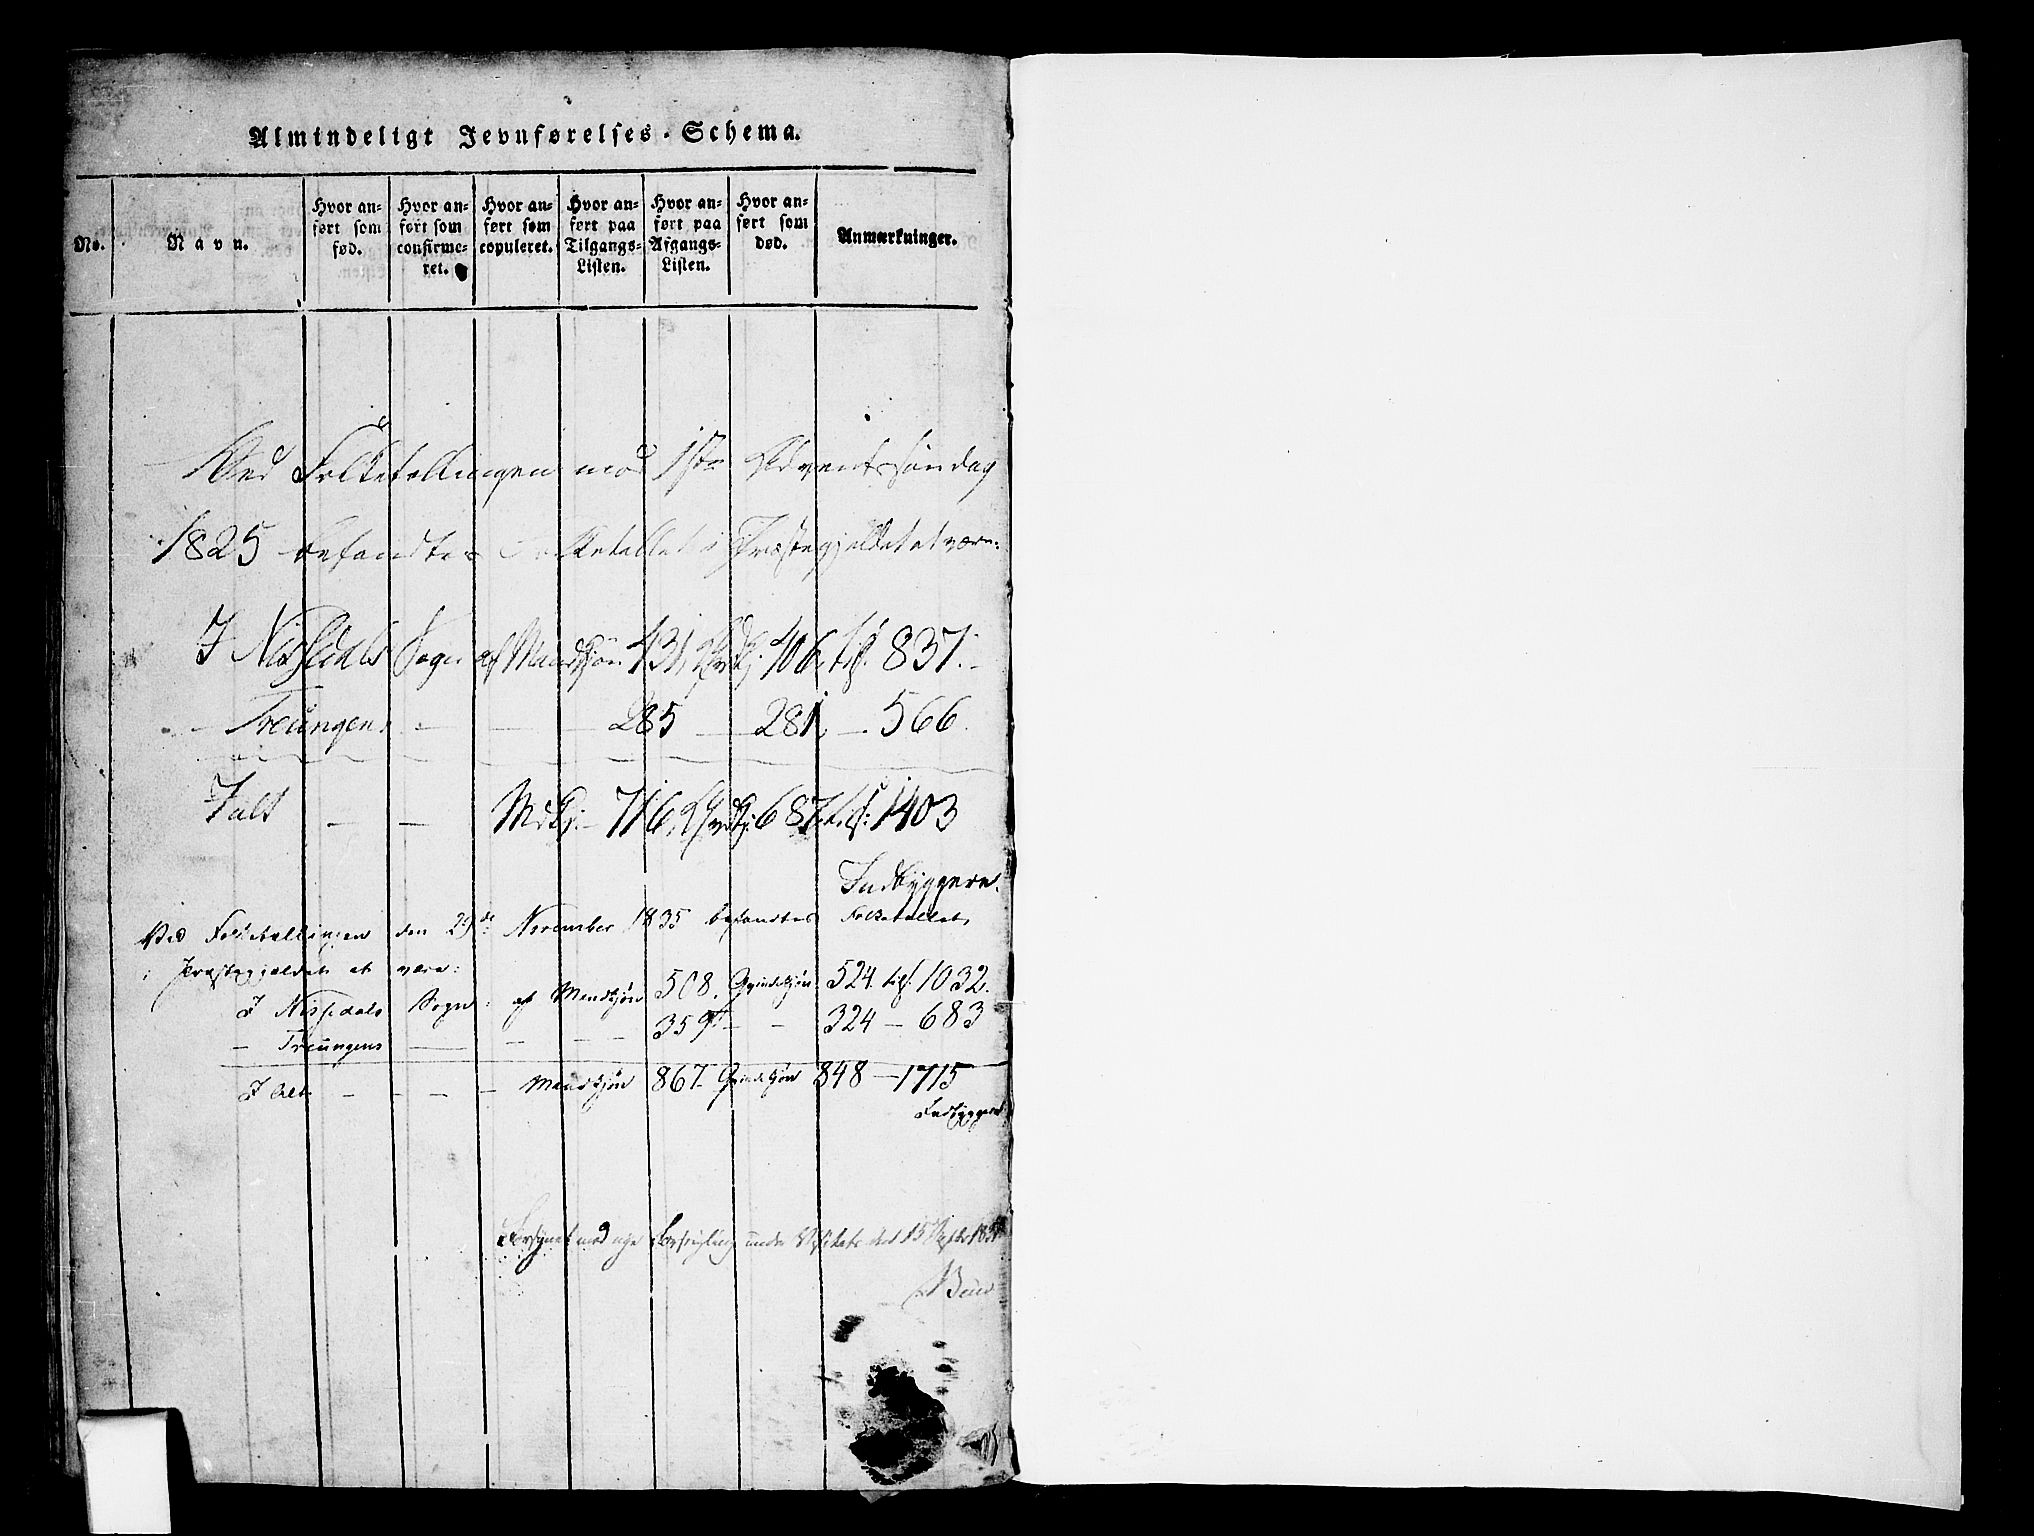 Almindeligt Jevnførelses-Schema.
No.
Navn.
Hvor anført som fød.
Hvor anført som confirmeret.
Hvor anført som copuleret.
Hvor anført paa Tilgangs-Listen.
Hvor anført paa Afgangs-Listen.
Hvor anført som død.
Anmærkninger.
Ved Folketællingen med 1ste Adventssøndag
1825 befandtes Folketallet i Præstegjeldet at være:
I Nissedals Sogn af Mandkjøn 431, Qvdkj. 406, tils. 837.
— Treungens — — — 285 — 281, — 566.
Ialt — — Mdkj: 716, Qvdkj: 687, tils: 1403
Indbyggere.
Ved Folketællingen den 29de November 1835 befandtes Folketallet
i Præstegjeldet at være:
I Nissedals Sogn: af Mandkjøn 508. Qvindekjøn 524. tils. 1032.
— Treungens — — — — 359 — — 324 — 683
I Alt — — — — Mandkjøn 867. Qvindekjøn 848 — 1715
Indbyggere
under Visitats den 15